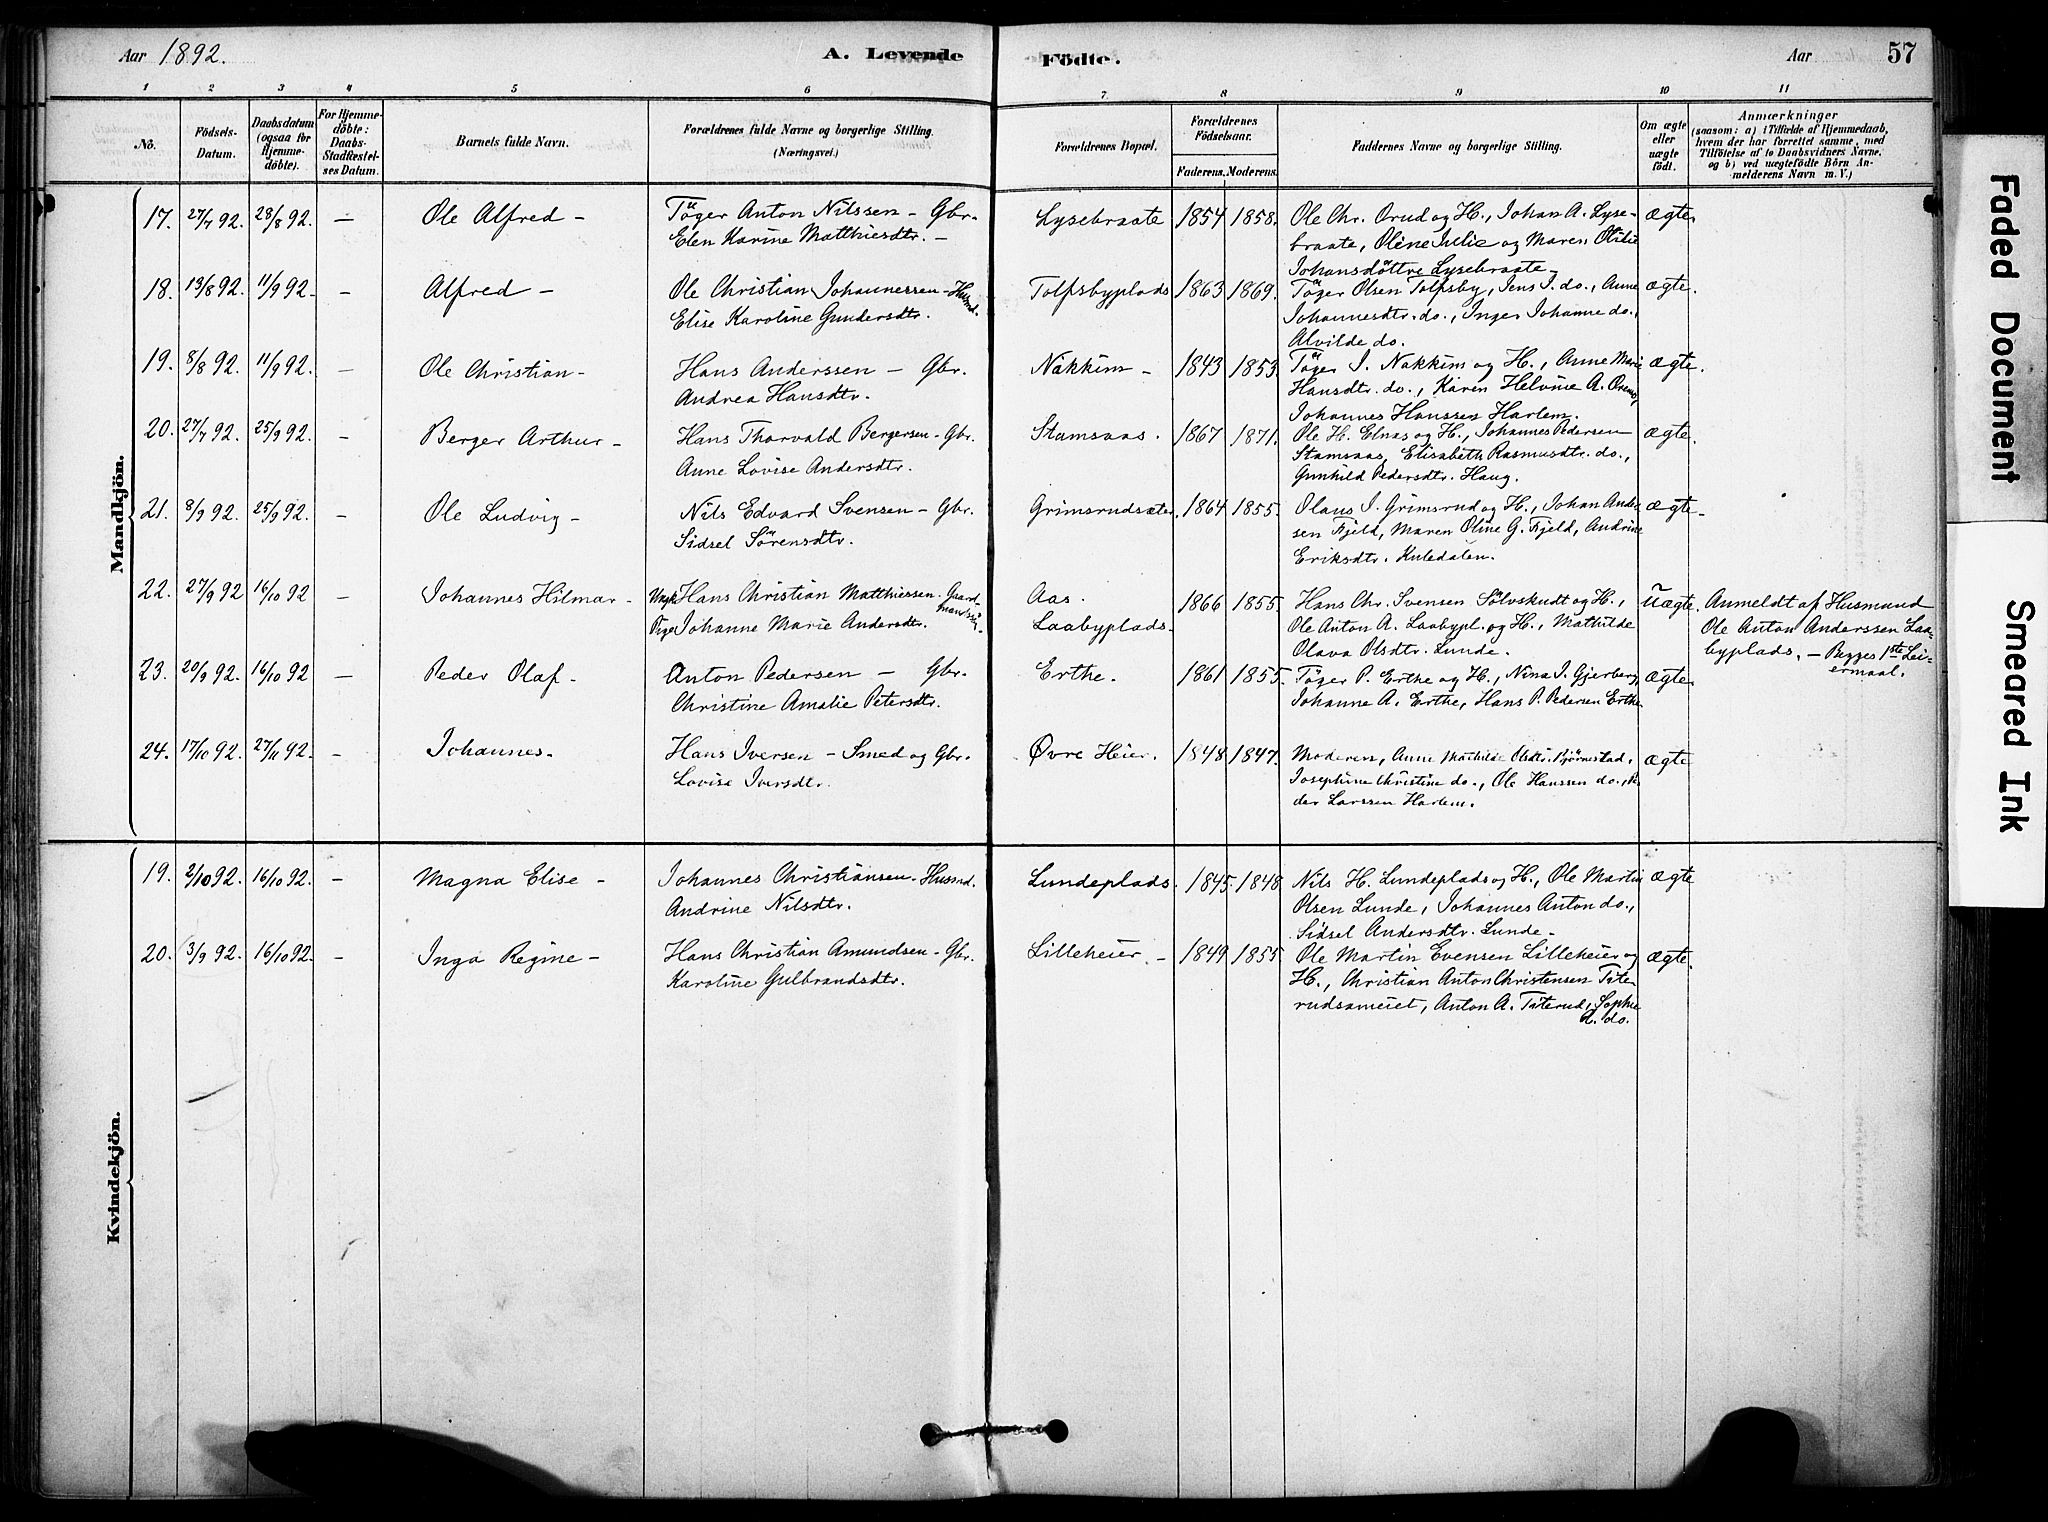 Aar 1892.
A. Levende
Födte.
Aar
57
1 2 3 4 5 6 7 8 9 10 11
No.
Födsels-
Datum.
Daabsdatum
(ogsaa for
Hjemme-
döbte).
For Hjemme-
döbte:
Daabs-
Stadfæstel-
ses Datum.
Barnets fulde Navn.
Forældrenes fulde Navne og borgerlige Stilling.
(Næringsvei.)
Forældrenes Bopæl.
Forældrenes
Födselsaar.
Faderens. Moderens.
Faddernes Navne og borgerlige Stilling.
Om ægte
eller
uægte
födt.
Anmærkninger
(saasom: a) i Tilfælde af Hjemmedaab,
hvem der har forrettet samme, med
Tilföielse af to Daabsvidners Navne,
og b) ved uægtefödte Börn An-
melderens Navn m. V.)
Mandkjön.
17. 27/7 92. 28/8 92. — Ole Alfred — Töger Anton Nilssen — Gbr. Lysebraate 1854 1858. Ole Chr. Orud og H., Johan A. Lyse- ægte.
Elen Karine Matthiesdtr. — braate, Oline Julie og Maren Otilie
Johansdöttre Lysebraate —
18. 13/8 92. 11/9 92. — Alfred — Ole Christian Johannessen — Husmd. Tolfsbyplads 1863 1869. Töger Olsen Tolfsby, Jens J. do., Anne ægte.
Elise Karoline Gundersdtr. Johannesdtr. do., Inger Johanne do.,
Alvilde do.
19. 8/8 92. 11/9 92. — Ole Christian — Hans Anderssen — Gbr. Nakkim — 1843 1853. Töger J. Nakkim og H., Anne Marie ægte.
Andrea Hansdtr. Hansdtr. do., Karen Helvine A.
Johannes Hanssen Harlem.
20. 27/7 92. 25/9 92. — Berger Arthur — Hans Thorvald Bergersen — Gbr. Stamsaas. 1867 1871. Ole H. Elnæs og H., Johannes Pedersen ægte.
Anne Lovise Andersdtr. Stamsaas, Elisabeth Rasmusdtr. do.,
Gunhild Pedersdtr. Haug.
21. 8/9 92. 25/9 92. — Ole Ludvig — Nils Edvard Svensen — Gbr. Grimsrudsæter. 1864 1855. Olaus J. Grimsrud og H., Johan Ander- ægte.
Sidsel Sörensdtr. sen Fjeld, Maren Oline G. Fjeld, Andrine
Eriksdtr. Kuledalen.
22. 27/9 92 16/10 92 — Johannes Hilmar — Ungk. Hans Christian Matthiessen. Gaard- Aas. 1866 1855. Hans Chr. Svensen Sölvskudt og H., Uægte. Anmeldt af Husmand
mandssön.
Pige Johanne Marie Andersdtr. Laabyplads. Ole Anton A. Laabypl. og H., Mathilde Ole Anton Anderssen Laa-
Olava Olsdtr. Lunde. byplads. — Begges 1ste Lei-
ermaal.
23. 20/9 92 16/10 92 — Peder Olaf — Anton Pedersen — Gbr. Erthe. 1861 1855. Töger P. Erthe og H., Nina J. Gjerberg, ægte.
Christine Amalie Petersdtr. Johanne A. Erthe, Hans P. Pedersen Erthe
24. 17/10 92. 27/11 92 — Johannes — Hans Iversen — Smed og Gbr. Øvre Heier. 1848 1847. Moderen, Anne Mathilde Olsdtr. Bjørnestad, ægte
Lovise Iversdtr. Josephine Christine do., Ole Hanssen do., Pe-
der Larssen Harlem.
Kvindekjön.
19. 2/10 92. 16/10 92. — Magna Elise — Johannes Christiansen — Husmd. Lundeplads. 1845. 1848. Nils H. Lundeplads og H., Ole Martin ægte
Andrine Nilsdtr. Olsen Lunde, Johannes Anton do.,
Sidsel Andersdtr. Lunde —
20. 3/9 92. 16/10 92. — Inga Regine — Hans Christian Amundsen — Gbr. Lilleheier. — 1849 1855. Ole Martin Evensen Lilleheier og ægte.
Karoline Gulbrandsdtr. H., Christian Anton Christensen Täte-
rudsameiet, Anton A. Täterud, Sophie
A. do.
Faded Document
Smeared Ink